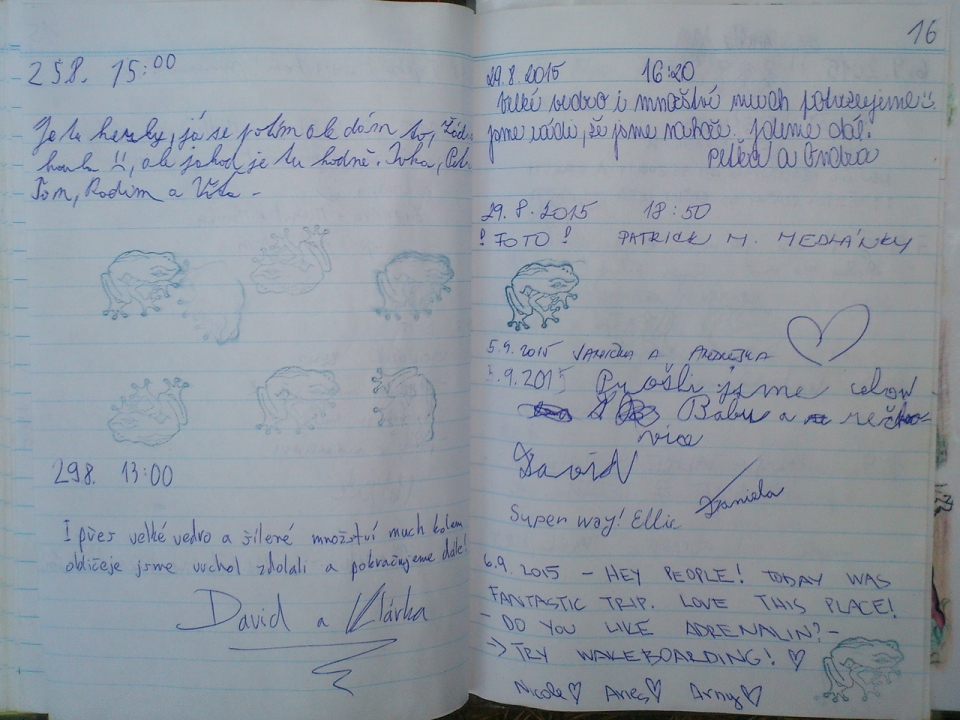 258. 15:00
Je tu hezky, já se potím ale dám to,
houba !!, ale jahod je tu hodně. Ivka,
Tom, Radim a Víťa -
298. 13:00
I přes velké vedro a šílené množství much kolem
obličeje jsme vrchol zdolali a pokračujeme dále!
David a Klárka
16
29.8.2015 16:20
Velké vedro i množství much potvrzujeme
jsme rádi, že jsme nahoře. Jdeme dál.
Péťa a Ondra
29.8.2015 18:50
! FOTO ! PATRICK M. MEDLÁNKY
5.9.2015 JANIČKA A
5.9.2015 Prošli jsme celou
Babu a
vice
David
Daniela
Super way! Ellie
6.9.2015 - HEY PEOPLE! TODAY WAS
FANTASTIC TRIP. LOVE THIS PLACE!
- DO YOU LIKE ADRENALIN? -
-> TRY WAKEBOARDING! ♡
Nicole♡ Aneś♡ Arny♡